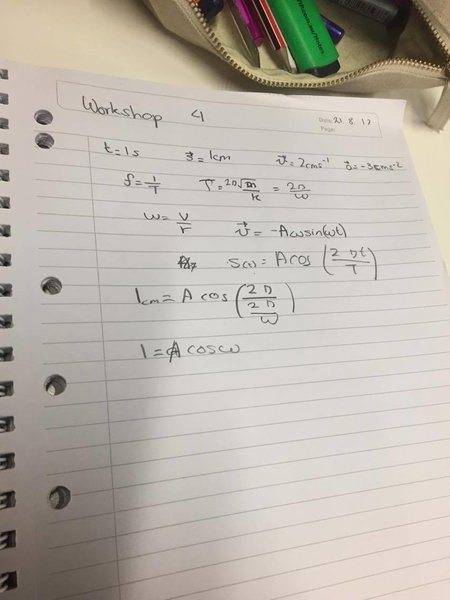 Workshop 4
Date: 21.8.17
Page:
t=1s s⃗=1cm v⃗=2cms⁻¹ a⃗=-3cms⁻²
f=1/T T=2π√m/k = 2π/ω
ω=v/r v⃗=-Aωsin(ωt)
s(t)=Acos(2πt/T)
1cm=A cos(2π/(2π/ω))
1=A cosω